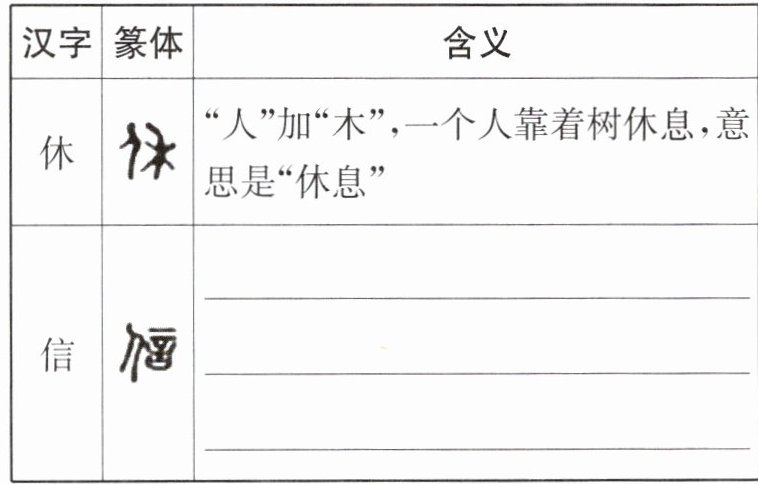 汉字 篆体 含义
休 休 “人”加“木”,一个人靠着树休息,意
思是“休息”
信 信